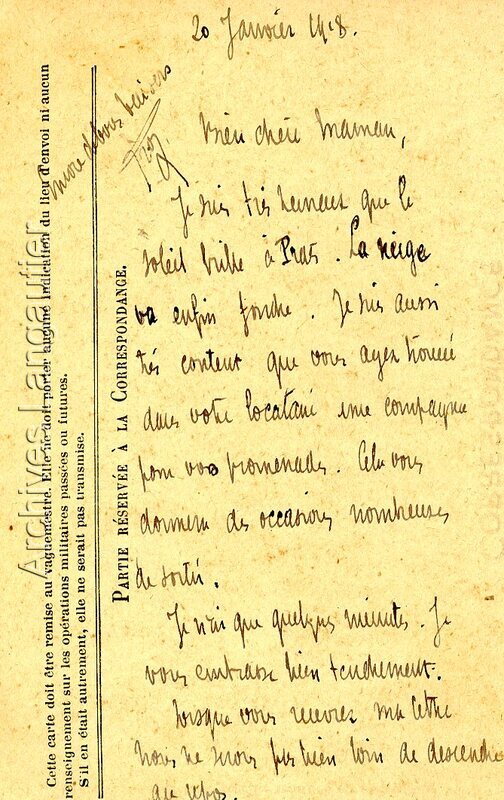 20 Janvier 1918.
Bien chère Maman,
Je suis très heureux que le
soleil brille à Prats. La neige
va enfin fondre. Je suis aussi
très content que vous ayez trouvé
dans votre locataire une compagne
pour vos promenades. Cela vous
donnera des occasions nombreuses
de sortir.
Je n'ai que quelques minutes. Je
vous embrasse bien tendrement.
Lorsque vous recevrez ma lettre
nous ne serons pas bien loin de descendre
au repos.
baisers
PARTIE RÉSERVÉE À LA CORRESPONDANCE.
Cette carte doit être remise au vaguemestre. Elle ne doit porter aucune indication du lieu d'envoi ni aucun
renseignement sur les opérations militaires passées ou futures.
S'il en était autrement, elle ne serait pas transmise.
Archives Langautier